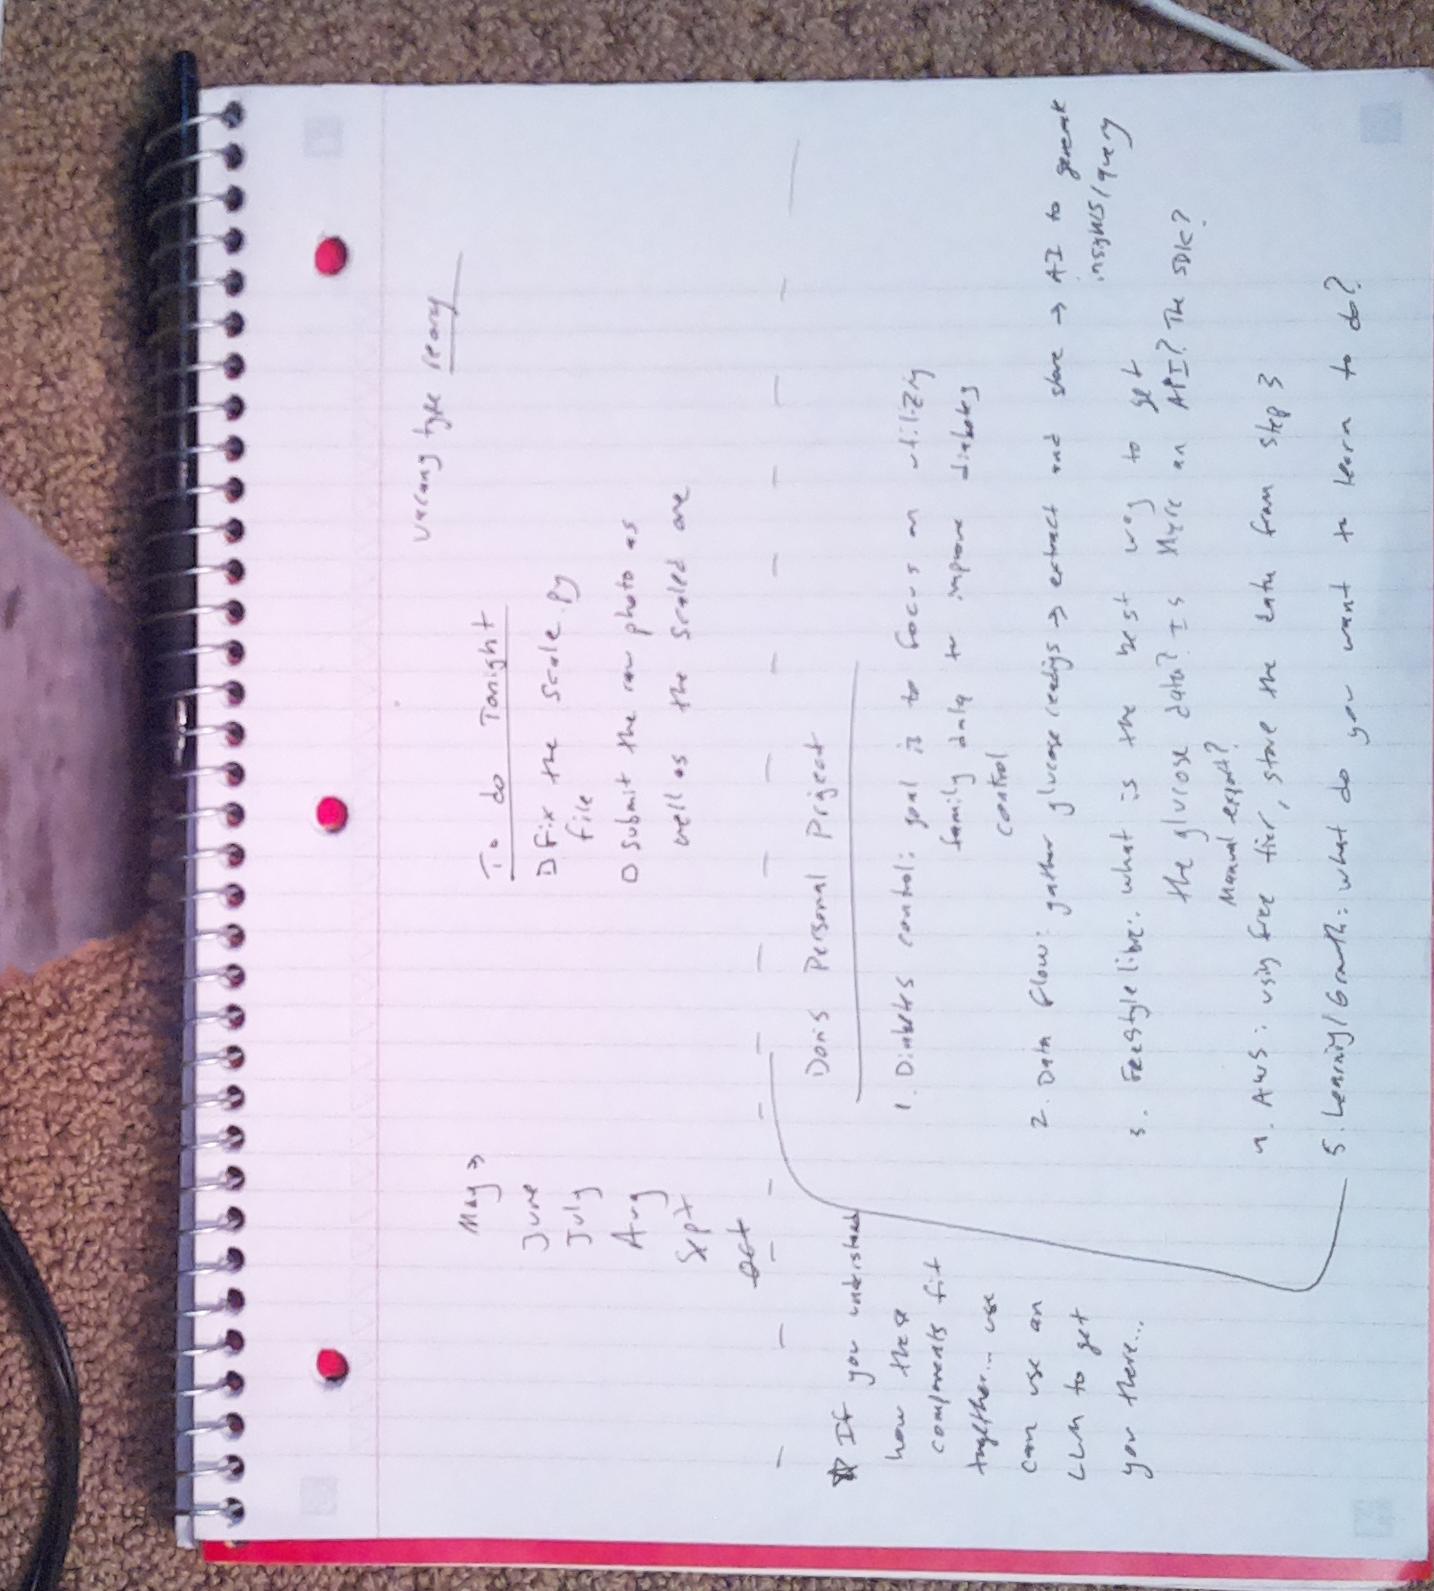 May →
June
July
Aug
Sept
Oct
wrong type
To do Tonight
Fix the scale.py
file
Submit the raw photo as
well as the scaled one
Don's Personal Project
1. Diabetes control: goal is to focus on utilizig
family data to improve diabetes
control
2. Data flow: gather glucose readigs → extract and store → AI to generate
insights/query
3. Freestyle libre: what is the best way to get
the glucose data? Is there an API? The SDK?
Manual export?
4. AWS: using free tier, store the data from step 3
5. Learning/Growth: what do you want to learn to do?
If you understand
how these
components fit
together... use
can use an
LLM to get
you there...